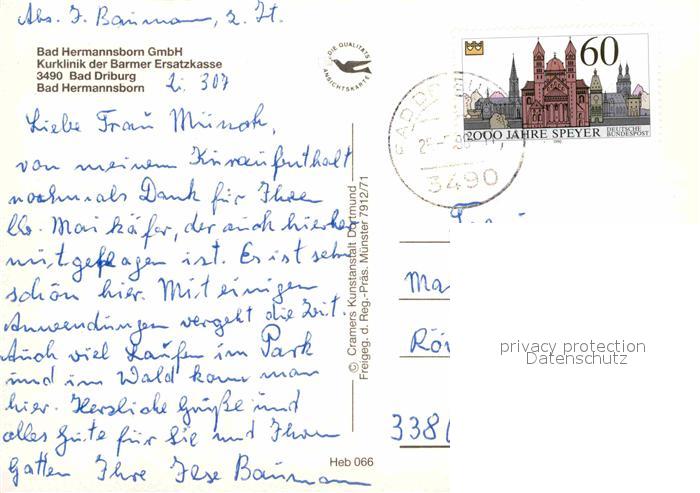 Abs. J. Baumann, z. Zt.
Bad Hermannsborn GmbH
Kurklinik der Barmer Ersatzkasse
3490 Bad Driburg
Bad Hermannsborn Zi. 307
DIE QUALITÄTS
ANSICHTSKARTE
60
2000 JAHRE SPEYER
DEUTSCHE
BUNDESPOST
1990
3490
Liebe Frau Münch,
von meinem Kuraufenthalt
nochmals Dank für Ihren
Maikäfer, der auch hierher
mitgeflogen ist. Es ist sehr
schön hier. Mit einigen
Anwendungen vergeht die Zeit.
Auch viel Laufen im Park
und im Wald kann man
hier. Herzliche Grüße und
alles Gute für Sie und Ihren
Gatten Ihre Ilse Baumann
© Cramers Kunstanstalt Dortmund
Freigeg. d. Reg.-Präs. Münster 7912/71
Heb 066
Ma
Rö
338
privacy protection
Datenschutz